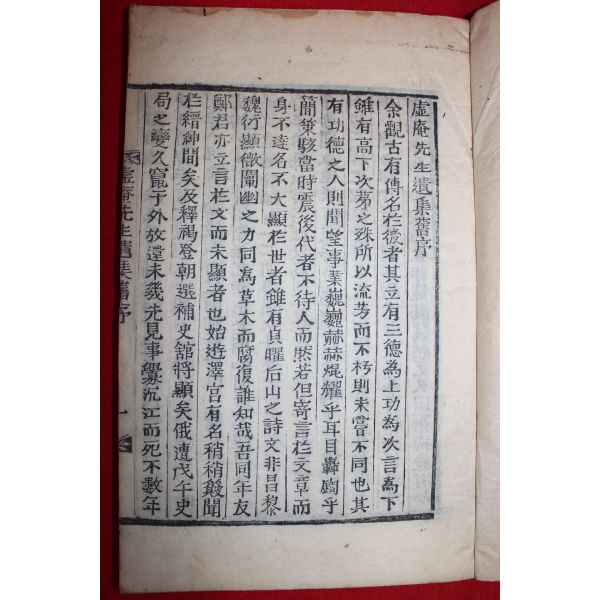 虛庵先生遺集舊序
余觀古有傳名於後者其立有三德為上功為次言為下
雖有高下次第之殊所以流芳而不朽則未嘗不同也其
有功德之人則聞望事業巍巍赫赫焜耀乎耳目轟輷乎
簡策駭當時震後代者不待人而然若但寄言於文章而
身不達名不大顯於世者雖有貞曜后山之詩文非昌黎
魏衍顯微闡幽之力同為草木而腐復誰知哉吾同年友
鄭君亦立言於文而未顯者也始遊澤宮有名稍稍毀聞
於縉紳間矣及釋褐登朝選補史舘將顯矣俄遭戊午史
局之變久竄于外放還未幾先見事釁沉江而死不數年
虛庵先生遺集舊序 一